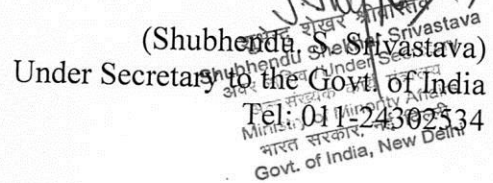 (Shubhendu. S. Srivastava)
Under Secretary to the Govt. of India
Tel: 011-24302534
शेखर श्रीवास्तव
Shubhendu Shekhar Srivastava
Under Secretary
Ministry of Minority Affairs
भारत सरकार, नई दिल्ली
Govt. of India, New Delhi